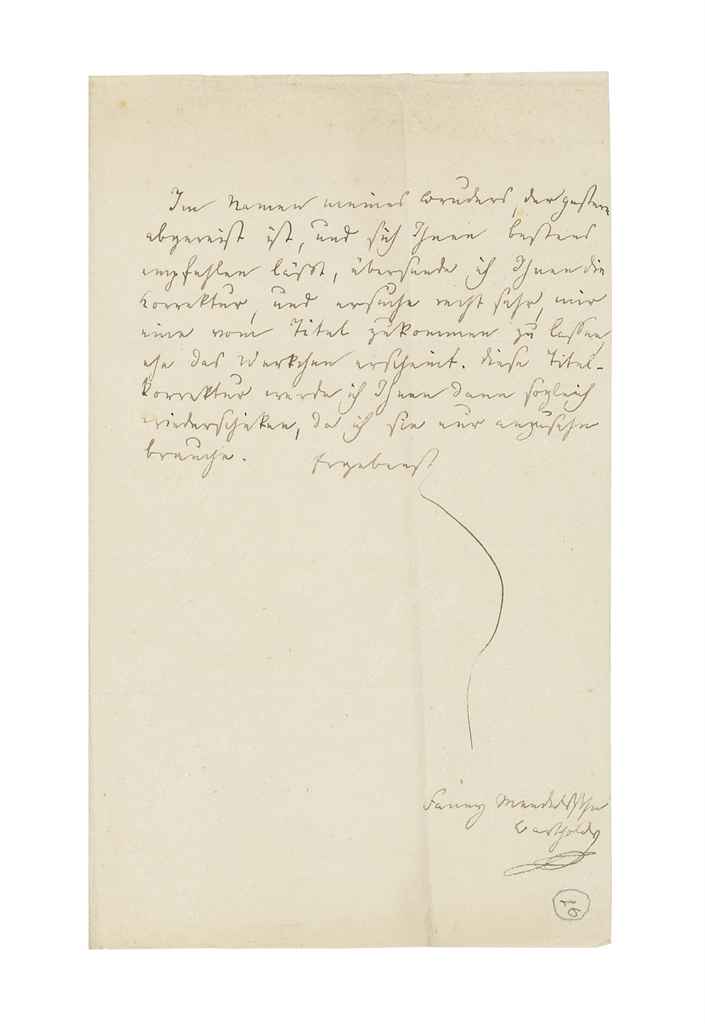 Im Namen meines Bruders, der gestern
abgereist ist, und sich Ihnen bestens
empfehlen läßt, übersende ich Ihnen die
Korrektur, und ersuche recht sehr, mir
eine vom Titel zukommen zu lassen,
ehe das Werkchen erscheint. Diese Titel-
korrektur werde ich Ihnen dann sogleich
wiederschicken, da ich sie nur anzusehn
brauche. Ergebenst
Fanny Mendelssohn
Bartholdy